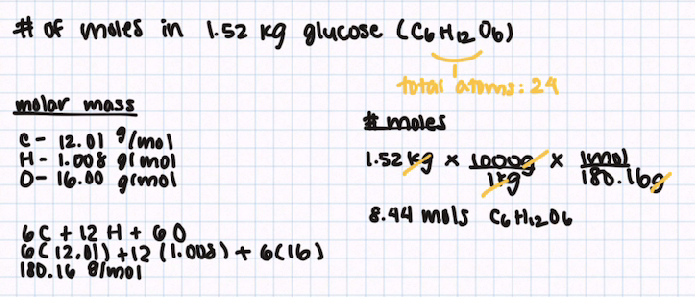 # of moles in 1.52 kg glucose (C6H12O6)
total atoms: 24
molar mass
C - 12.01 g/mol
H - 1.008 g/mol
O - 16.00 g/mol
6C + 12 H + 6 O
6(12.01) + 12 (1.008) + 6(16)
180.16 g/mol
# moles
1.52 kg × 1000g/1kg × 1mol/180.16g
8.44 mols C6H12O6